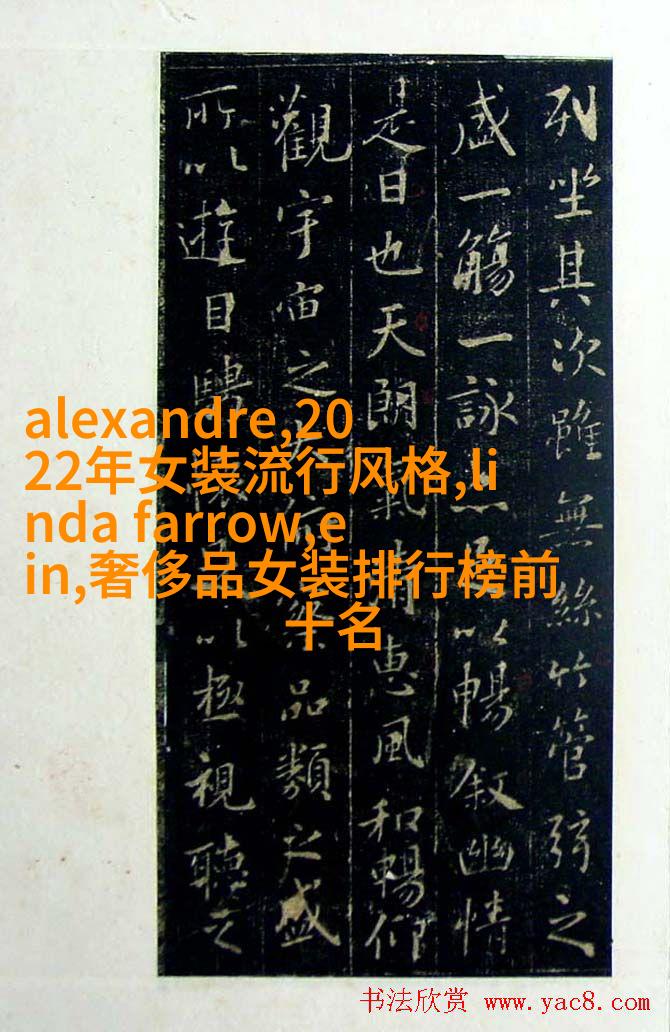 列坐其次雖無絲竹管弦之
盛一觴一詠以暢叙幽情
是日也天朗氣清惠風和暢仰
觀宇宙之品類之盛
所以遊目騁以極視聽之
alexandre,20
22年女装流行风格,li
nda farrow,e
in,奢侈品女装排行榜前
十名
书法欣赏 www.yac8.com